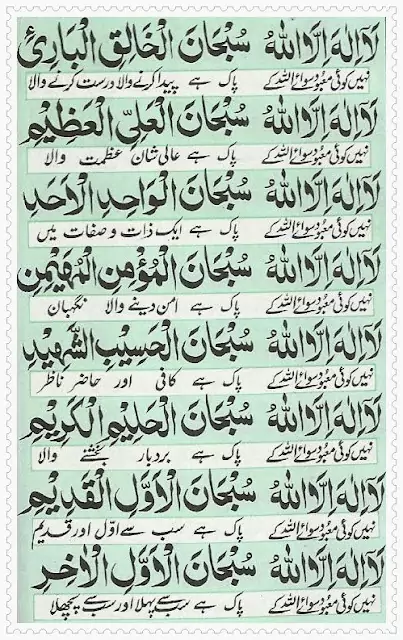 لَآ اِلٰهَ اِلَّا اللّٰهُ سُبْحَانَ الْخَالِقِ الْبَارِئِ
نہیں کوئی معبود سوائے اللہ کے پاک ہے پیدا کرنے والا درست کرنے والا
لَآ اِلٰهَ اِلَّا اللّٰهُ سُبْحَانَ الْعَلِیِّ الْعَظِیْمِ
نہیں کوئی معبود سوائے اللہ کے پاک ہے عالی شان عظمت والا
لَآ اِلٰهَ اِلَّا اللّٰهُ سُبْحَانَ الْوَاحِدِ الْاَحَدِ
نہیں کوئی معبود سوائے اللہ کے پاک ہے ایک ذات و صفات میں
لَآ اِلٰهَ اِلَّا اللّٰهُ سُبْحَانَ الْمُؤْمِنِ الْمُهَیْمِنِ
نہیں کوئی معبود سوائے اللہ کے پاک ہے امن دینے والا نگہبان
لَآ اِلٰهَ اِلَّا اللّٰهُ سُبْحَانَ الْحَسِیْبِ الشَّهِیْدِ
نہیں کوئی معبود سوائے اللہ کے پاک ہے کافی اور حاضر ناظر
لَآ اِلٰهَ اِلَّا اللّٰهُ سُبْحَانَ الْحَلِیْمِ الْكَرِیْمِ
نہیں کوئی معبود سوائے اللہ کے پاک ہے بردبار بخشنے والا
لَآ اِلٰهَ اِلَّا اللّٰهُ سُبْحَانَ الْاَوَّلِ الْقَدِیْمِ
نہیں کوئی معبود سوائے اللہ کے پاک ہے سب سے اوّل اور قدیم
لَآ اِلٰهَ اِلَّا اللّٰهُ سُبْحَانَ الْاَوَّلِ الْاٰخِرِ
نہیں کوئی معبود سوائے اللہ کے پاک ہے سب سے پہلا اور سب سے پچھلا